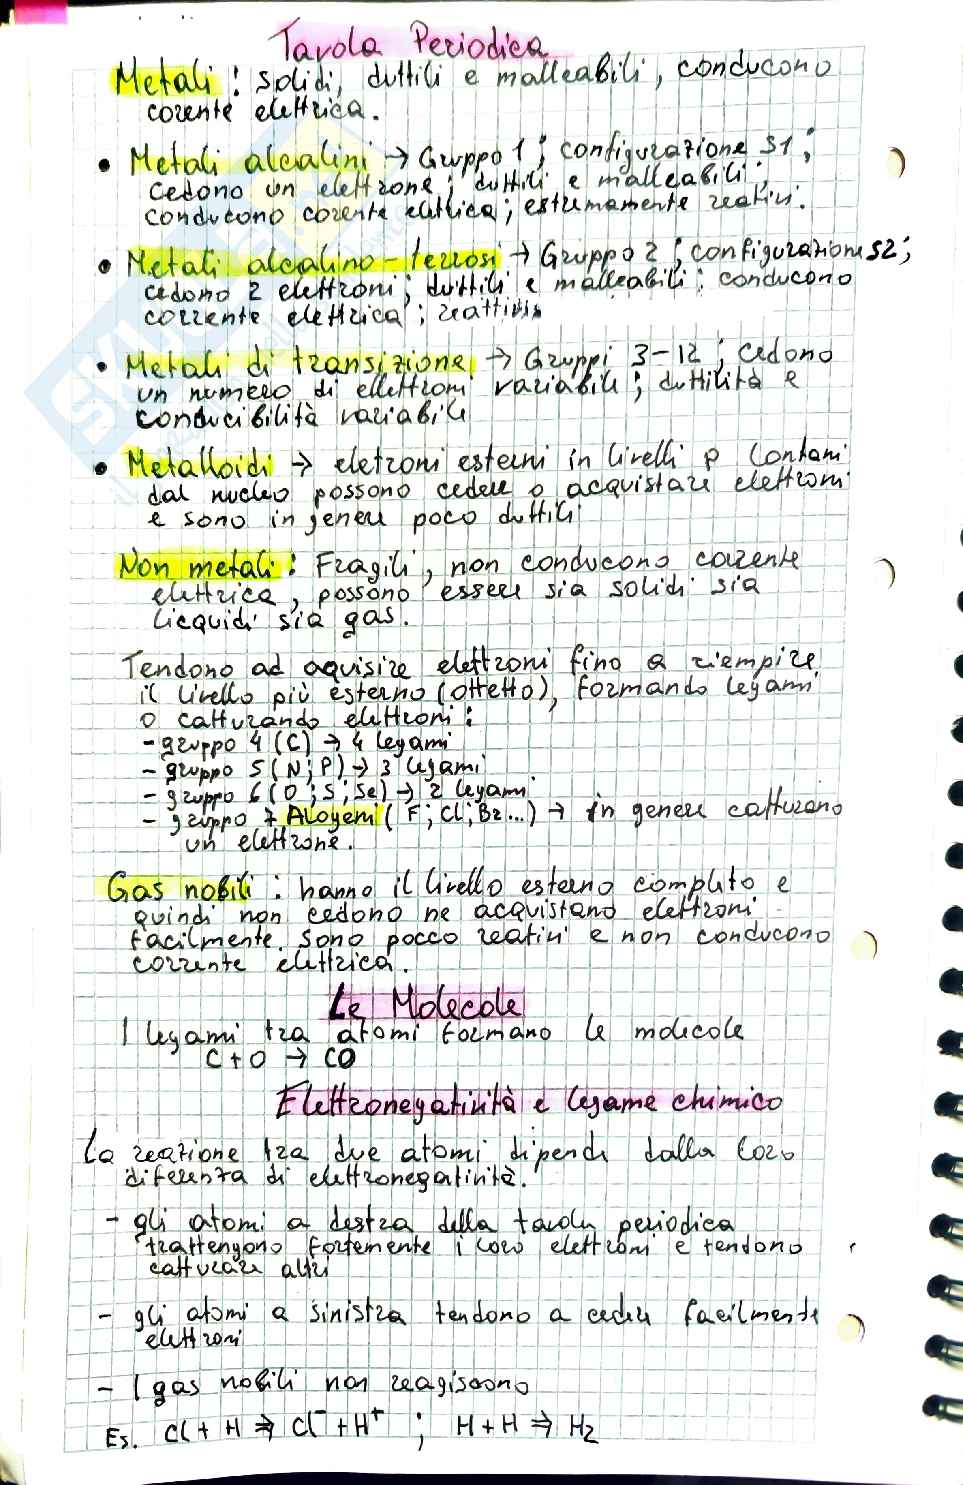 Tavola Periodica
Metali : solidi, duttili e malleabili, conducono
corente elettrica.
• Metali alcalini → Gruppo 1 ; configurazione S1 ;
cedono un elettrone ; duttili e malleabili ;
conducono corente elettrica ; estremamente reativi.
• Metali alcalino-terrosi → Gruppo 2 ; configurazione S2 ;
cedono 2 elettroni ; duttili e malleabili ; conducono
corrente elettrica ; reattivi
• Metali di transizione → Gruppi 3-12 ; cedono
un numero di ellettroni variabile ; duttilità e
conducibilità variabile
• Metalloidi → eletroni esterni in livelli p lontani
dal nucleo possono cedere o acquistare elettroni
e sono in genere poco duttili
Non metali : Fragili, non conducono corrente
elettrica, possono essere sia solidi sia
licquidi sia gas.
Tendono ad aquisire elettroni fino a riempire
il livello più esterno (ottetto), formando legami
o catturando elettroni :
- gruppo 4 (C) → 4 legami
- gruppo 5 (N ; P) → 3 legami
- gruppo 6 (O ; S ; Se) → 2 legami
- gruppo 7 Alogeni ( F ; Cl ; Br...) → in genere catturano
un elettrone.
Gas nobili : hanno il livello esterno completo e
quindi non cedono ne acquistano elettroni
facilmente. Sono pocco reativi e non conducono
corrente elettrica.
Le Molecole
I legami tra atomi formano le molecole
C + O → CO
Elettronegatività e legame chimico
La reazione tra due atomi dipende dalla loro
diferenza di elettronegatività.
- gli atomi a destra della tavola periodica
trattengono fortemente i loro elettroni e tendono
catturare altri
- gli atomi a sinistra tendono a cedere facilmente
elettroni
- I gas nobili non reagiscono
Es. Cl + H ⇒ Cl⁻ + H⁺ ; H + H ⇒ H₂